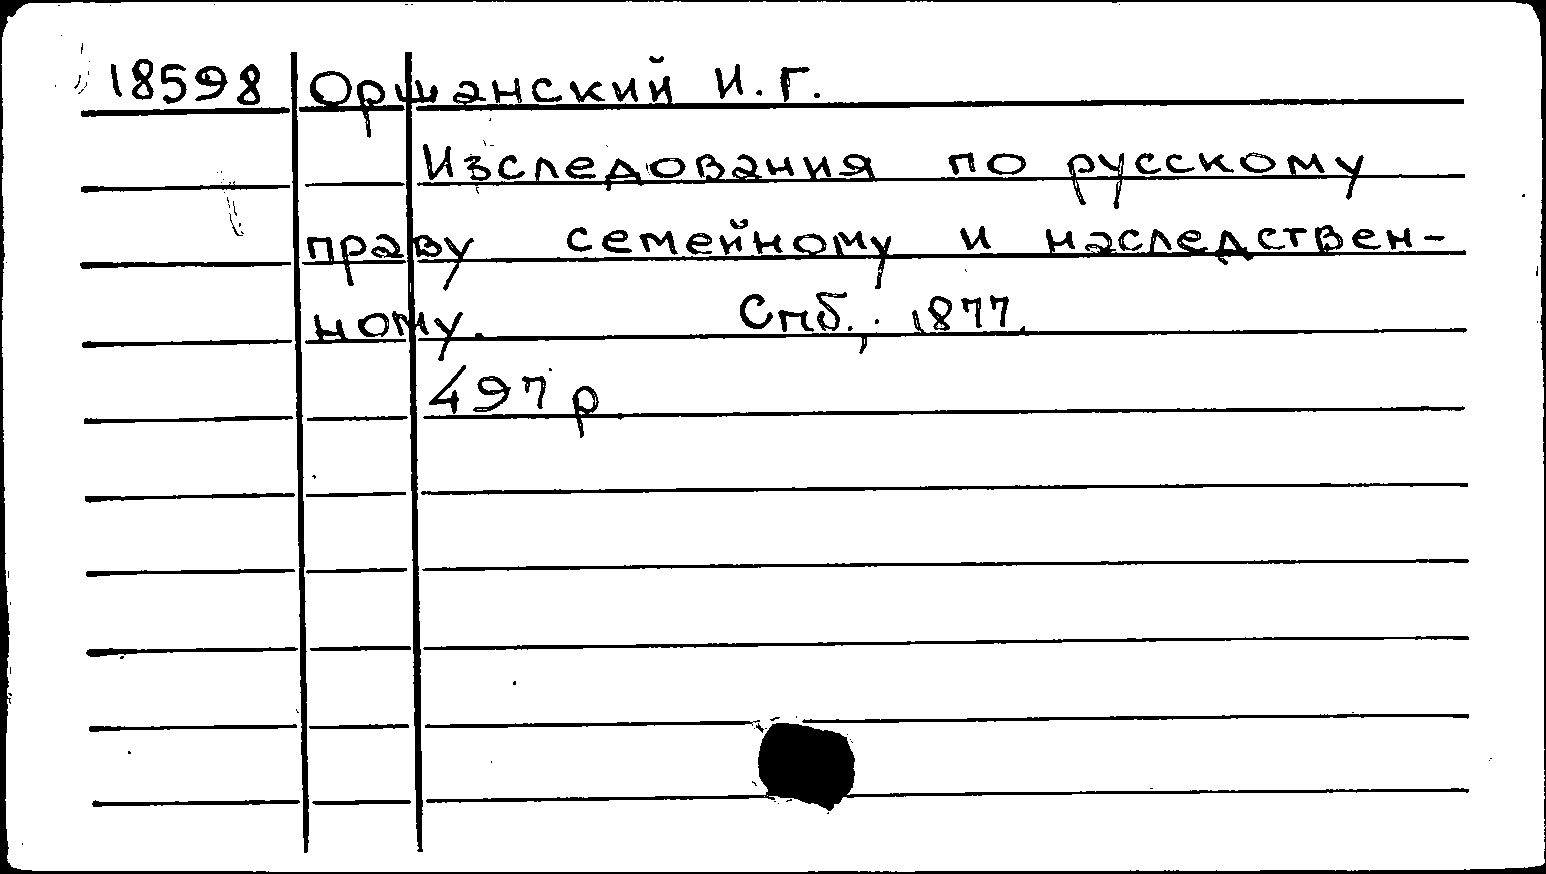 18598 Оршанский И.Г.
Изследования по русскому
праву семейному и наследствен-
ному. Спб., 1877.
497 р.